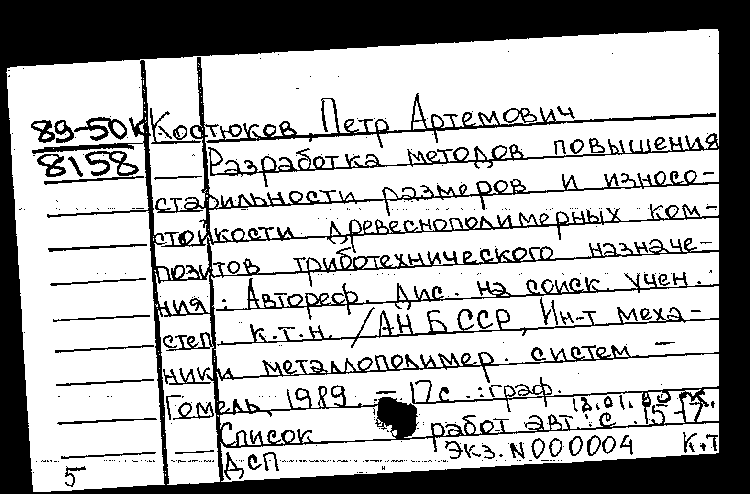 89-50к Костюков, Петр Артемович
8158 Разработка методов повышения
стабильности размеров и износо-
стойкости древеснополимерных ком-
позитов триботехнического назначе-
ния : Автореф. дис. на соиск. учен.
степ. к.т.н. / АН БССР, Ин-т меха-
ники металлополимер. систем –
Гомель, 1989. – 17 с. : граф.
18.01.90
Список работ авт.: с. 15-17.
ДСП Экз. N 000004 К.Т
5